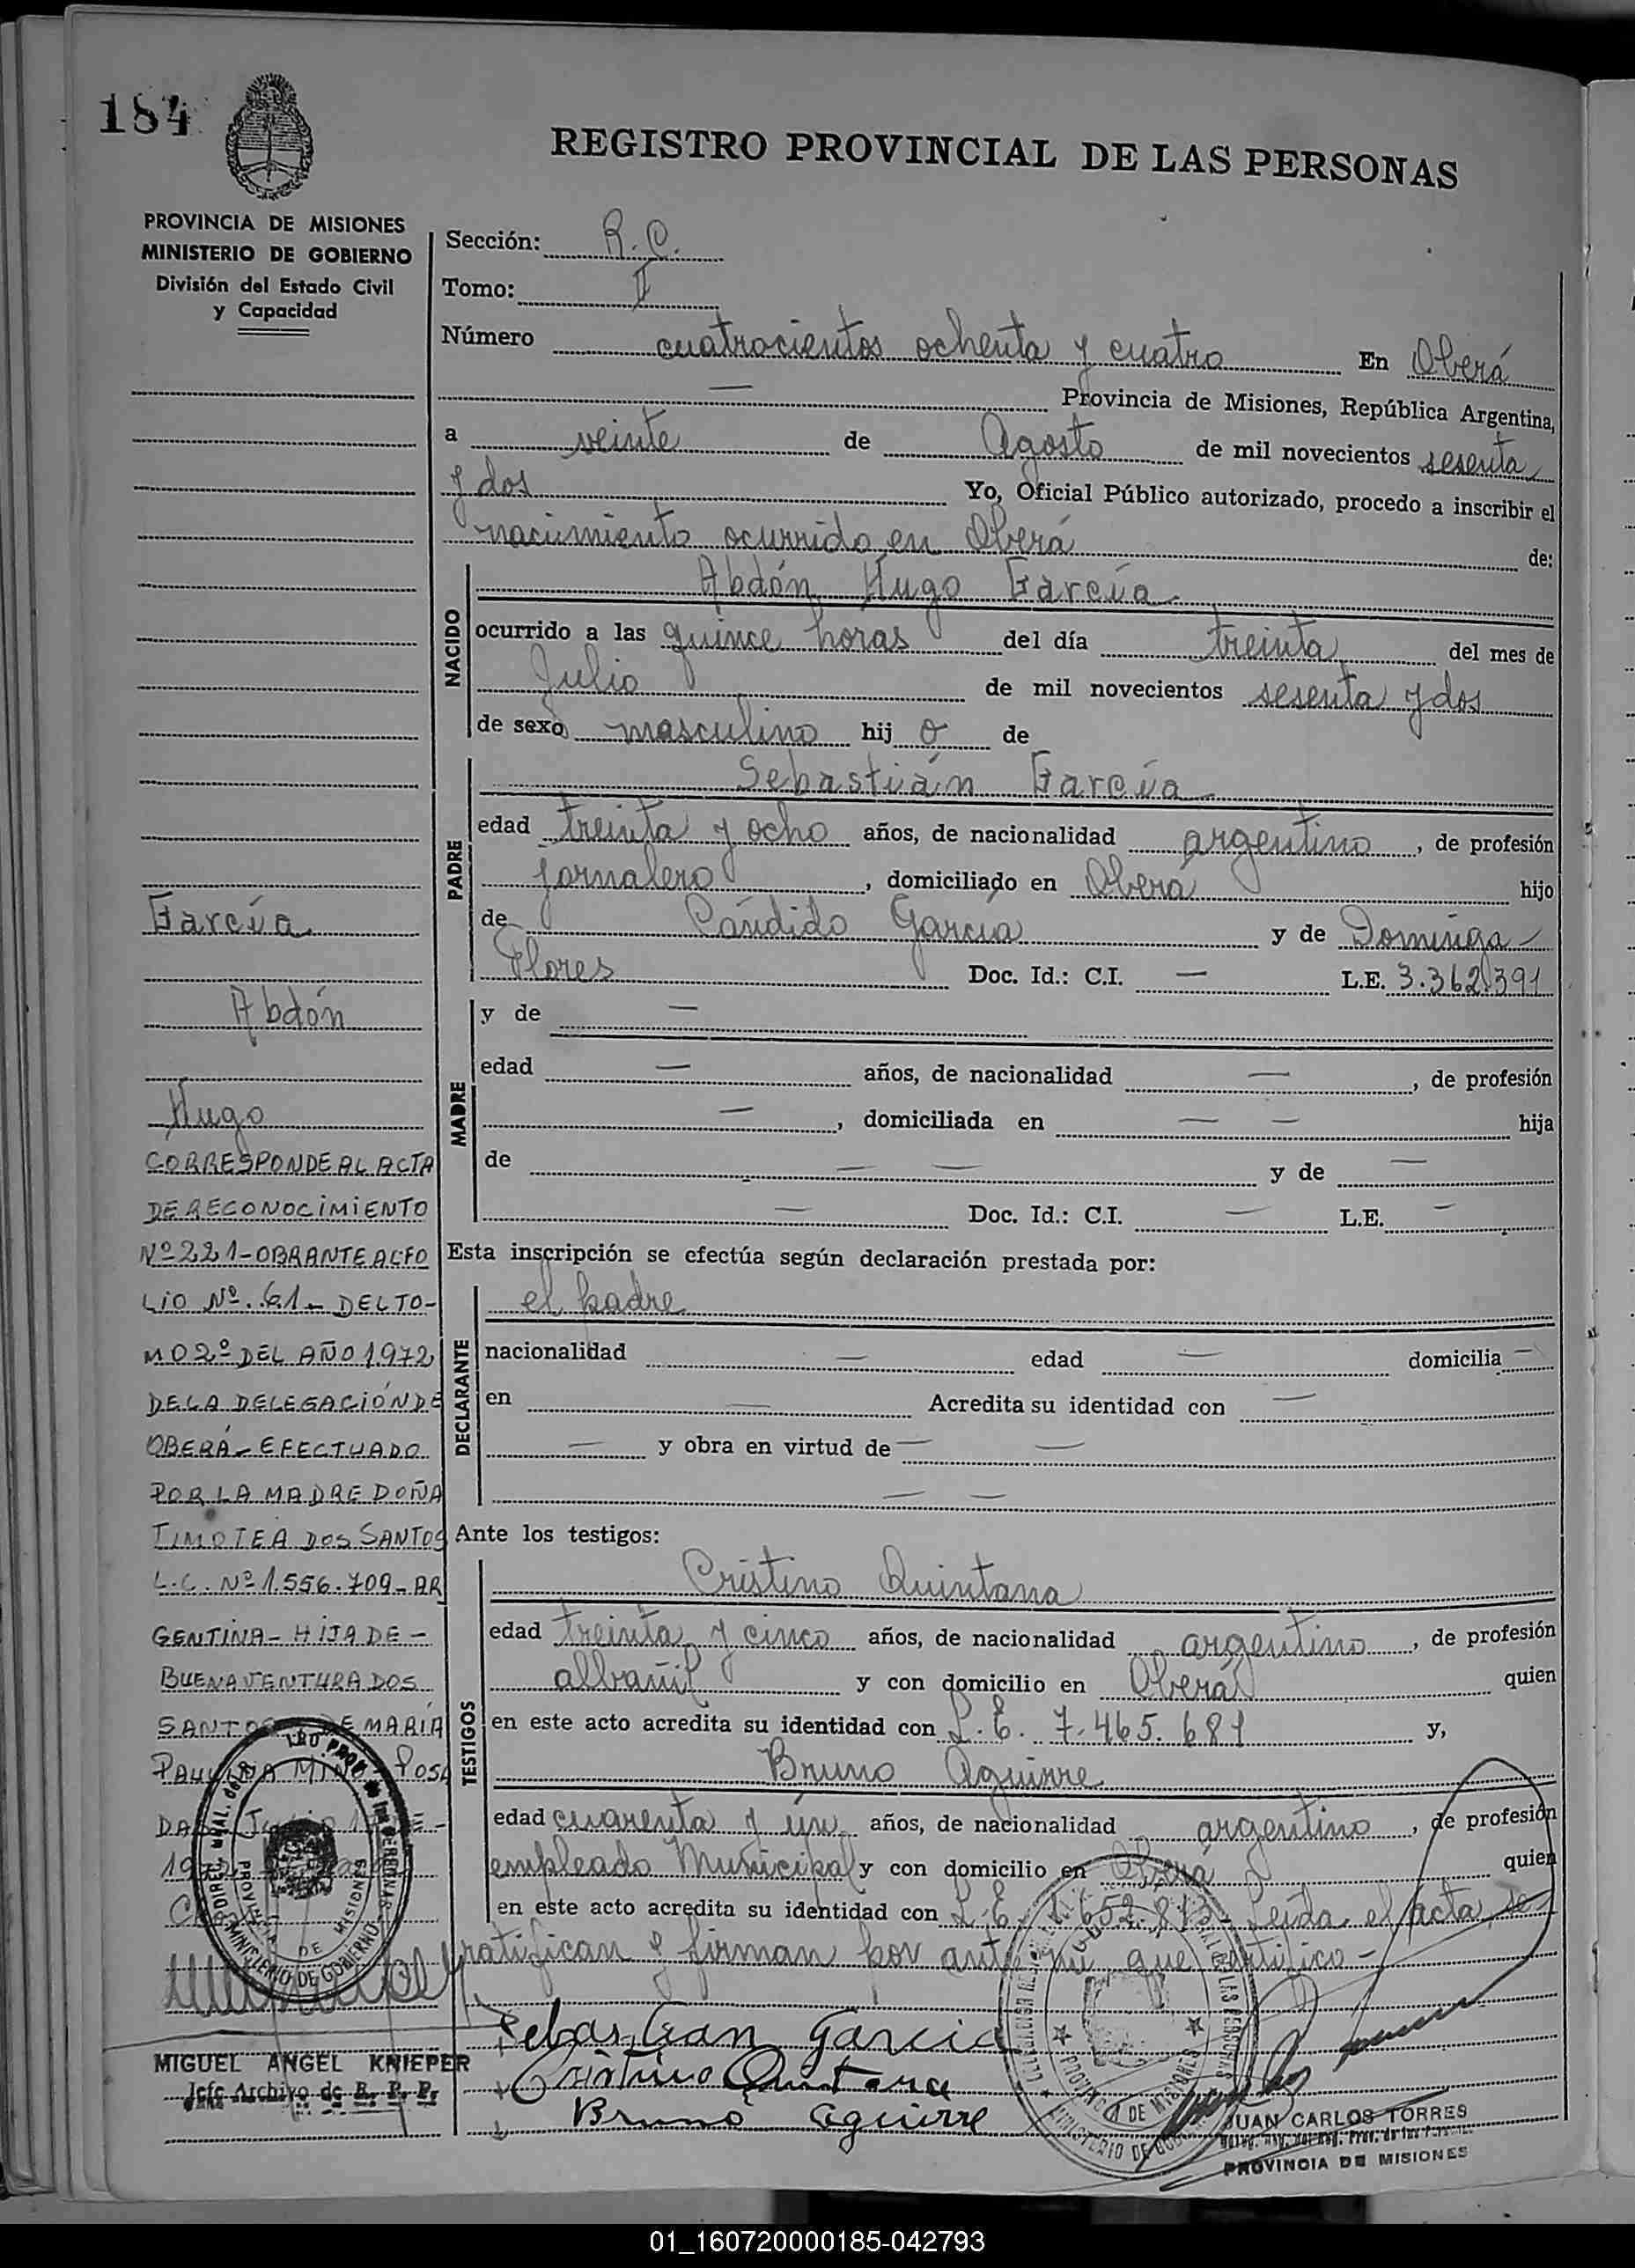 184
REGISTRO PROVINCIAL DE LAS PERSONAS
PROVINCIA DE MISIONES
MINISTERIO DE GOBIERNO
División del Estado Civil
y Capacidad
Sección: R. C.
Tomo: I
Número cuatrocientos ochenta y cuatro En Oberá
— Provincia de Misiones, República Argentina,
a veinte de Agosto de mil novecientos sesenta
y dos Yo, Oficial Público autorizado, procedo a inscribir el
nacimiento ocurrido en Oberá de:
NACIDO
Abdón Hugo García
ocurrido a las quince horas del día treinta del mes de
Julio de mil novecientos sesenta y dos
de sexo masculino hij o de
PADRE
Sebastián García
edad treinta y ocho años, de nacionalidad argentino, de profesión
jornalero, domiciliado en Oberá hijo
de Cándido García y de Dominga
Flores Doc. Id.: C.I. — L.E. 3.362.391
MADRE
y de —
edad — años, de nacionalidad —, de profesión
—, domiciliada en — — hija
de — — y de —
— Doc. Id.: C.I. — L.E. —
Esta inscripción se efectúa según declaración prestada por:
DECLARANTE
el padre
nacionalidad — edad — domicilia —
en — Acredita su identidad con —
— y obra en virtud de — —
— —
Ante los testigos:
TESTIGOS
Cristino Quintana
edad treinta y cinco años, de nacionalidad argentino, de profesión
albañil y con domicilio en Oberá quien
en este acto acredita su identidad con L.E. 7.465.681 y,
Bruno Aguirre
edad cuarenta y ún años, de nacionalidad argentino, de profesión
empleado Municipal y con domicilio en Oberá quien
en este acto acredita su identidad con L.E. Leída el acta, se
ratifican y firman por ante mi que certifico -
Sebastian Garcia
Cristino Quintana
Bruno Aguirre
JUAN CARLOS TORRES
PROVINCIA DE MISIONES
García
Abdón
Hugo
CORRESPONDE AL ACTA
DE RECONOCIMIENTO
Nº 221-OBRANTE AL FO
LIO Nº. 61- DEL TO-
MO 2º DEL AÑO 1972
DE LA DELEGACIÓN DE
OBERÁ- EFECTUADO
POR LA MADRE DOÑA
TIMOTEA DOS SANTOS
L.C. Nº 1.556.709- AR
GENTINA- HIJA DE -
BUENAVENTURA DOS
SANTOS DE MARIA
PAULINA MIÑO POSA
DAS
MINISTERIO DE GOBIERNO
PROVINCIA DE MISIONES
MIGUEL ANGEL KNIEPER
Jefe Archivo de R. P. P.
01_160720000185-042793